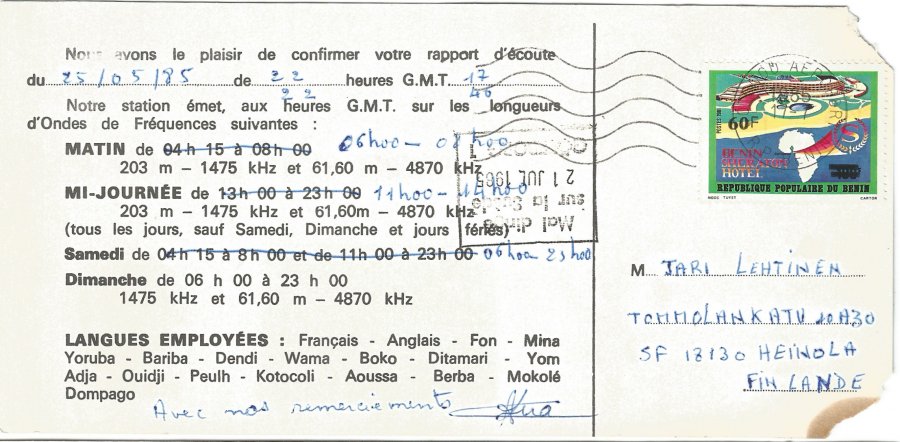 Nous avons le plaisir de confirmer votre rapport d'écoute
du 25/05/85 de 22 heures G.M.T. 17
22 40
Notre station émet, aux heures G.M.T. sur les longueurs
d'Ondes de Fréquences suivantes :
MATIN de 04 h 15 à 08 h 00 06h00 - 08h00
203 m – 1475 kHz et 61,60 m – 4870 kHz
MI-JOURNÉE de 13h 00 à 23 h 00 11h00 - 14h00
203 m – 1475 kHz et 61,60m – 4870 kHz
(tous les jours, sauf Samedi, Dimanche et jours fériés)
Samedi de 04 h 15 à 8 h 00 et de 11h 00 à 23h 00 06h00 - 23h00
Dimanche de 06 h 00 à 23 h 00
1475 kHz et 61,60 m – 4870 kHz
LANGUES EMPLOYÉES : Français - Anglais - Fon - Mina
Yoruba - Bariba - Dendi - Wama - Boko - Ditamari - Yom
Adja - Ouidji - Peulh - Kotocoli - Aoussa - Berba - Mokolé
Dompago
Avec nos remerciements
Mal dirigé
sur la Suède
21 JUL 1985
60F
BENIN
SHERATON
HOTEL
REPUBLIQUE POPULAIRE DU BENIN
CARTOR
M JARI LEHTINEN
TOMMOLANKATU 10A30
SF 18130 HEINOLA
FINLANDE